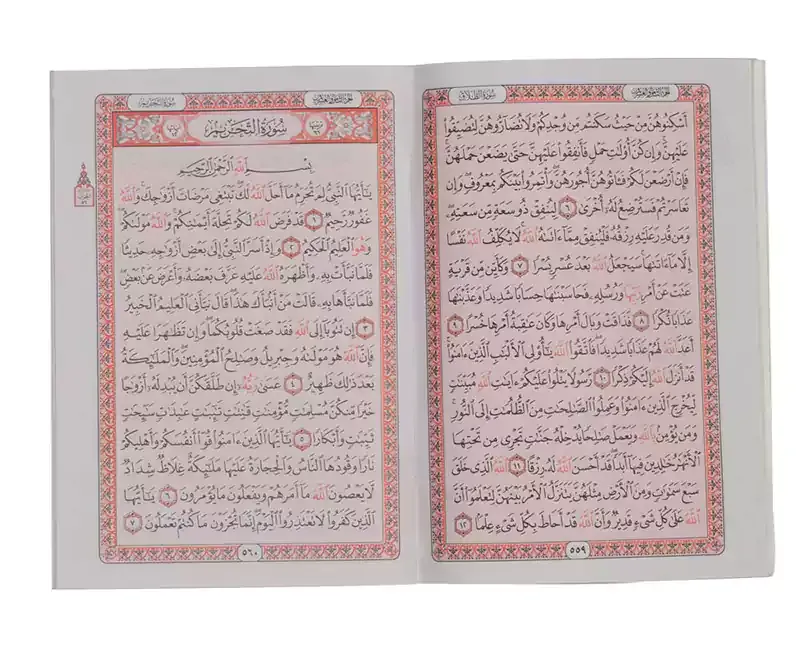 سورة الطلاق
الجزء الثامن والعشرون
أَسْكِنُوهُنَّ مِنْ حَيْثُ سَكَنتُم مِّن وُجْدِكُمْ وَلَا تُضَآرُّوهُنَّ لِتُضَيِّقُوا۟
عَلَيْهِنَّ ۚ وَإِن كُنَّ أُو۟لَٰتِ حَمْلٍ فَأَنفِقُوا۟ عَلَيْهِنَّ حَتَّىٰ يَضَعْنَ حَمْلَهُنَّ ۚ
فَإِنْ أَرْضَعْنَ لَكُمْ فَـَٔاتُوهُنَّ أُجُورَهُنَّ ۖ وَأْتَمِرُوا۟ بَيْنَكُم بِمَعْرُوفٍ ۖ وَإِن
تَعَاسَرْتُمْ فَسَتُرْضِعُ لَهُۥٓ أُخْرَىٰ ٦ لِيُنفِقْ ذُو سَعَةٍ مِّن سَعَتِهِۦ ۖ
وَمَن قُدِرَ عَلَيْهِ رِزْقُهُۥ فَلْيُنفِقْ مِمَّآ ءَاتَىٰهُ ٱللَّهُ ۚ لَا يُكَلِّفُ ٱللَّهُ نَفْسًا
إِلَّا مَآ ءَاتَىٰهَا ۚ سَيَجْعَلُ ٱللَّهُ بَعْدَ عُسْرٍ يُسْرًا ٧ وَكَأَيِّن مِّن قَرْيَةٍ
عَتَتْ عَنْ أَمْرِ رَبِّهَا وَرُسُلِهِۦ فَحَاسَبْنَٰهَا حِسَابًا شَدِيدًا وَعَذَّبْنَٰهَا
عَذَابًا نُّكْرًا ٨ فَذَاقَتْ وَبَالَ أَمْرِهَا وَكَانَ عَٰقِبَةُ أَمْرِهَا خُسْرًا ٩
أَعَدَّ ٱللَّهُ لَهُمْ عَذَابًا شَدِيدًا ۖ فَٱتَّقُوا۟ ٱللَّهَ يَٰٓأُو۟لِى ٱلْأَلْبَٰبِ ٱلَّذِينَ ءَامَنُوا۟ ۚ
قَدْ أَنزَلَ ٱللَّهُ إِلَيْكُمْ ذِكْرًا ١٠ رَّسُولًا يَتْلُوا۟ عَلَيْكُمْ ءَايَٰتِ ٱللَّهِ مُبَيِّنَٰتٍ
لِّيُخْرِجَ ٱلَّذِينَ ءَامَنُوا۟ وَعَمِلُوا۟ ٱلصَّٰلِحَٰتِ مِنَ ٱلظُّلُمَٰتِ إِلَى ٱلنُّورِ ۚ
وَمَن يُؤْمِنۢ بِٱللَّهِ وَيَعْمَلْ صَٰلِحًا يُدْخِلْهُ جَنَّٰتٍ تَجْرِى مِن تَحْتِهَا
ٱلْأَنْهَٰرُ خَٰلِدِينَ فِيهَآ أَبَدًا ۖ قَدْ أَحْسَنَ ٱللَّهُ لَهُۥ رِزْقًا ١١ ٱللَّهُ ٱلَّذِى خَلَقَ
سَبْعَ سَمَٰوَٰتٍ وَمِنَ ٱلْأَرْضِ مِثْلَهُنَّ يَتَنَزَّلُ ٱلْأَمْرُ بَيْنَهُنَّ لِتَعْلَمُوٓا۟ أَنَّ
ٱللَّهَ عَلَىٰ كُلِّ شَىْءٍ قَدِيرٌ وَأَنَّ ٱللَّهَ قَدْ أَحَاطَ بِكُلِّ شَىْءٍ عِلْمًۢا ١٢
٥٥٩
الجزء الثامن والعشرون
سورة التحريم
سُورَةُ التَّحْرِيمِ
بِسْمِ ٱللَّهِ ٱلرَّحْمَٰنِ ٱلرَّحِيمِ
يَٰٓأَيُّهَا ٱلنَّبِىُّ لِمَ تُحَرِّمُ مَآ أَحَلَّ ٱللَّهُ لَكَ ۖ تَبْتَغِى مَرْضَاتَ أَزْوَٰجِكَ ۚ وَٱللَّهُ
غَفُورٌ رَّحِيمٌ ١ قَدْ فَرَضَ ٱللَّهُ لَكُمْ تَحِلَّةَ أَيْمَٰنِكُمْ ۚ وَٱللَّهُ مَوْلَىٰكُمْ ۖ
وَهُوَ ٱلْعَلِيمُ ٱلْحَكِيمُ ٢ وَإِذْ أَسَرَّ ٱلنَّبِىُّ إِلَىٰ بَعْضِ أَزْوَٰجِهِۦ حَدِيثًا
فَلَمَّا نَبَّأَتْ بِهِۦ وَأَظْهَرَهُ ٱللَّهُ عَلَيْهِ عَرَّفَ بَعْضَهُۥ وَأَعْرَضَ عَنۢ بَعْضٍ ۖ
فَلَمَّا نَبَّأَهَا بِهِۦ قَالَتْ مَنْ أَنۢبَأَكَ هَٰذَا ۖ قَالَ نَبَّأَنِىَ ٱلْعَلِيمُ ٱلْخَبِيرُ
٣ إِن تَتُوبَآ إِلَى ٱللَّهِ فَقَدْ صَغَتْ قُلُوبُكُمَا ۖ وَإِن تَظَٰهَرَا عَلَيْهِ
فَإِنَّ ٱللَّهَ هُوَ مَوْلَىٰهُ وَجِبْرِيلُ وَصَٰلِحُ ٱلْمُؤْمِنِينَ ۖ وَٱلْمَلَٰٓئِكَةُ
بَعْدَ ذَٰلِكَ ظَهِيرٌ ٤ عَسَىٰ رَبُّهُۥٓ إِن طَلَّقَكُنَّ أَن يُبْدِلَهُۥٓ أَزْوَٰجًا
خَيْرًا مِّنكُنَّ مُسْلِمَٰتٍ مُّؤْمِنَٰتٍ قَٰنِتَٰتٍ تَٰٓئِبَٰتٍ عَٰبِدَٰتٍ سَٰٓئِحَٰتٍ
ثَيِّبَٰتٍ وَأَبْكَارًا ٥ يَٰٓأَيُّهَا ٱلَّذِينَ ءَامَنُوا۟ قُوٓا۟ أَنفُسَكُمْ وَأَهْلِيكُمْ
نَارًا وَقُودُهَا ٱلنَّاسُ وَٱلْحِجَارَةُ عَلَيْهَا مَلَٰٓئِكَةٌ غِلَاظٌ شِدَادٌ
لَّا يَعْصُونَ ٱللَّهَ مَآ أَمَرَهُمْ وَيَفْعَلُونَ مَا يُؤْمَرُونَ ٦ يَٰٓأَيُّهَا
ٱلَّذِينَ كَفَرُوا۟ لَا تَعْتَذِرُوا۟ ٱلْيَوْمَ ۖ إِنَّمَا تُجْزَوْنَ مَا كُنتُمْ تَعْمَلُونَ ٧
٥٦٠